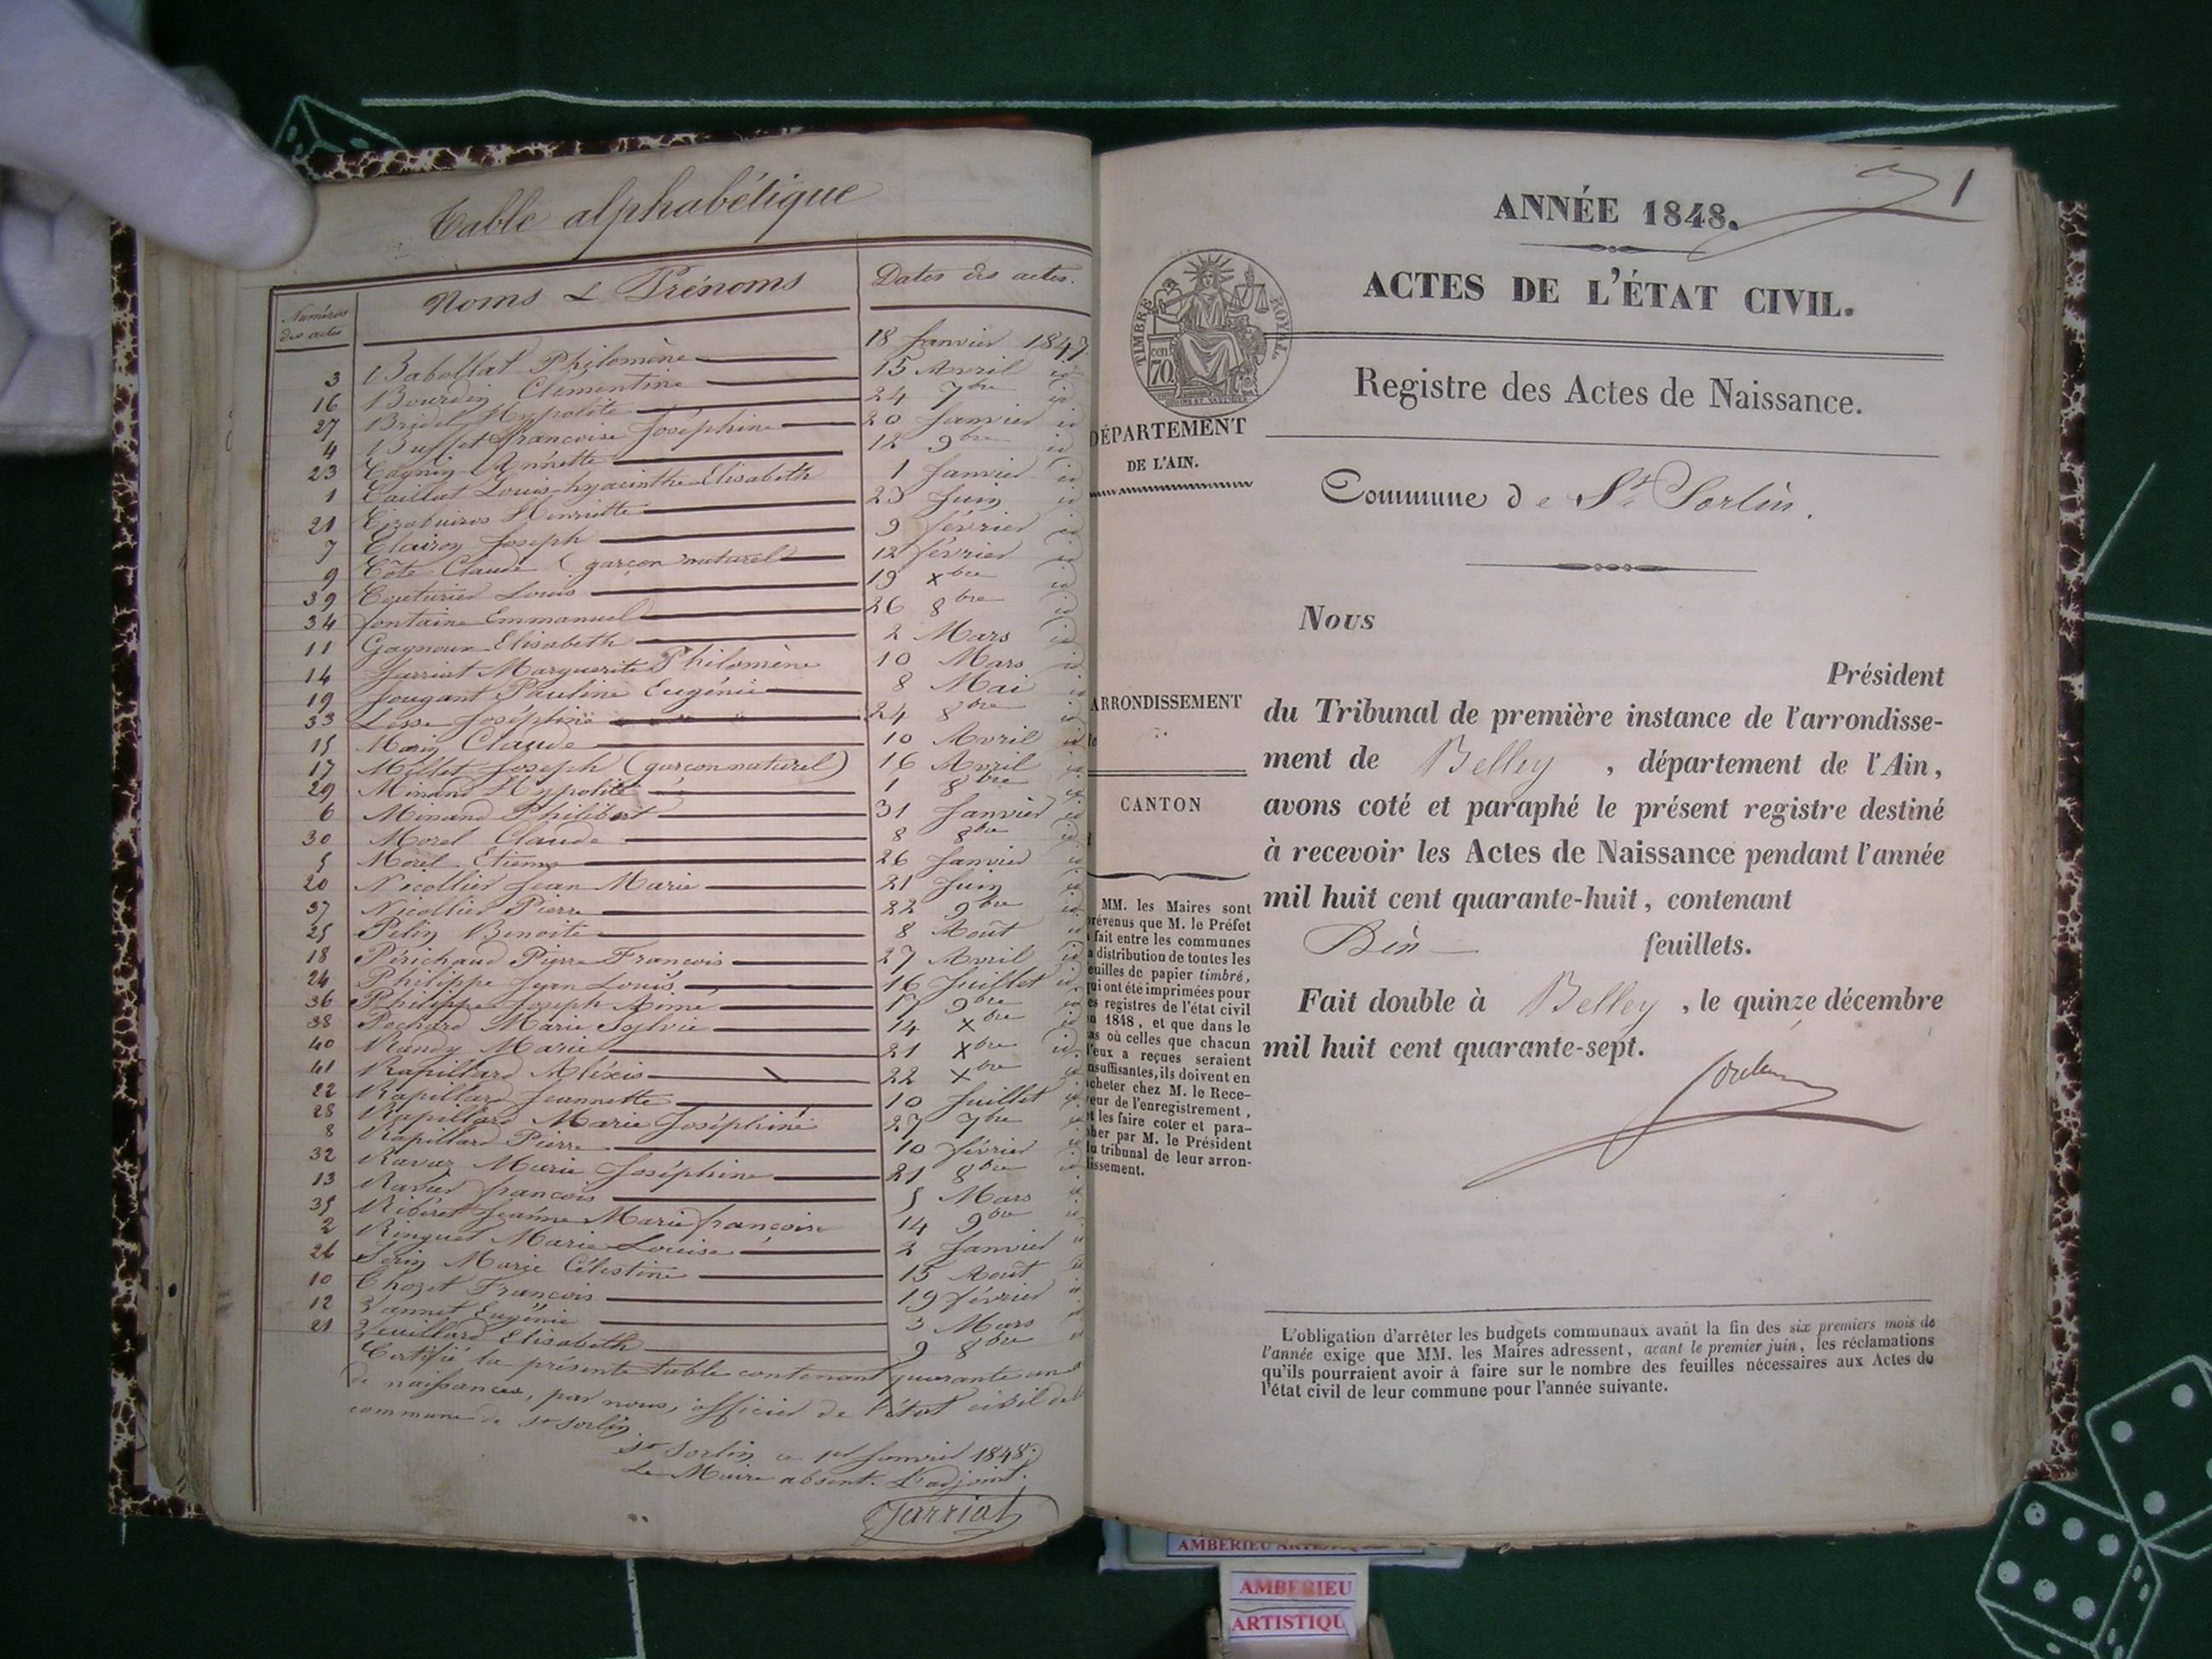 Table alphabétique
Numéros des actes
Noms & Prénoms
Dates des actes.
3 Babollat Philomène 18 Janvier 1847
16 Bourdin Clémentine 15 Avril id
27 Bridel Hypolite 24 7bre id
4 Buffet Françoise Joséphine 20 Janvier id
23 Cagnin Annette 12 9bre id
1 Caillat Louis-hyacinthe Elisabeth 1 Janvier id
21 Henriette 23 Juin id
7 Clairon Joseph 9 février id
9 Côte Claude (garçon naturel 12 février id
39 Couturier Louis 19 xbre id
34 fontaine Emmanuel 26 8bre id
11 Gagneux Elisabeth 2 Mars id
14 Jarriat Marguerite Philomène 10 Mars id
19 Jougant Pauline Eugénie 8 Mai id
33 Lesse Joséphine 24 8bre id
15 Morin Claude 10 Avril id
17 Millet Joseph (garçon naturel) 16 Avril id
29 Minand Hypolite 1 8bre id
6 Minand Philibert 31 Janvier id
30 Morel Claude 8 8bre id
5 Morel Etienne 26 Janvier id
20 Nicollier Jean Marie 21 Juin id
37 Nicollier Pierre 22 9bre id
25 Pelin Benoite 8 Août id
18 Périchaud Pierre François 27 Avril id
24 Philippe Jean Louis 16 Juillet id
36 Philippe Joseph Aimé 17 9bre id
38 Pochard Marie Sylvie 14 xbre id
40 Randy Marie 21 xbre id
41 Rapillard Aléxis 22 xbre id
22 Rapillard Jeannette 10 Juillet id
28 Rapillard Marie Joséphine 27 7bre id
8 Rapillard Pierre 10 février id
32 Ravaz Marie Joséphine 21 8bre id
13 Ravier françois 5 Mars id
35 Ribéret Jeanne Marie françoise 14 9bre id
2 Ringuet Marie Louise 2 Janvier id
26 Serin Marie Célestine 15 Août id
10 Chozet François 19 février id
12 Vannet Eugénie 3 Mars id
21 Veuillard Elisabeth 9 8bre id
Certifié la présente table contenant quarante un
de naissances, par nous, officier de l'état civil de
commune de st Sorlin.
St Sorlin ce 1er Janvier 1848.
Le Maire absent. L'adjoint.
Jarriat
1
ANNÉE 1848.
ACTES DE L'ÉTAT CIVIL.
TIMBRE ROYAL.
cen. 70
Registre des Actes de Naissance.
DÉPARTEMENT
DE L'AIN.
Commune de St Sorlin.
ARRONDISSEMENT
CANTON
MM. les Maires sont
prévenus que M. le Préfet
a fait entre les communes
la distribution de toutes les
feuilles de papier timbré,
qui ont été imprimées pour
les registres de l'état civil
en 1848, et que dans le
cas où celles que chacun
d'eux a reçues seraient
insuffisantes, ils doivent en
acheter chez M. le Rece-
veur de l'enregistrement,
et les faire coter et para-
pher par M. le Président
du tribunal de leur arron-
dissement.
Nous
Président
du Tribunal de première instance de l'arrondisse-
ment de Belley , département de l'Ain,
avons coté et paraphé le présent registre destiné
à recevoir les Actes de Naissance pendant l'année
mil huit cent quarante-huit, contenant
Dix feuillets.
Fait double à Belley , le quinze décembre
mil huit cent quarante-sept.
L'obligation d'arrêter les budgets communaux avant la fin des six premiers mois de
l'année exige que MM. les Maires adressent, avant le premier juin, les réclamations
qu'ils pourraient avoir à faire sur le nombre des feuilles nécessaires aux Actes de
l'état civil de leur commune pour l'année suivante.
AMBERIEU ARTISTIQUE
AMBERIEU
ARTISTIQU